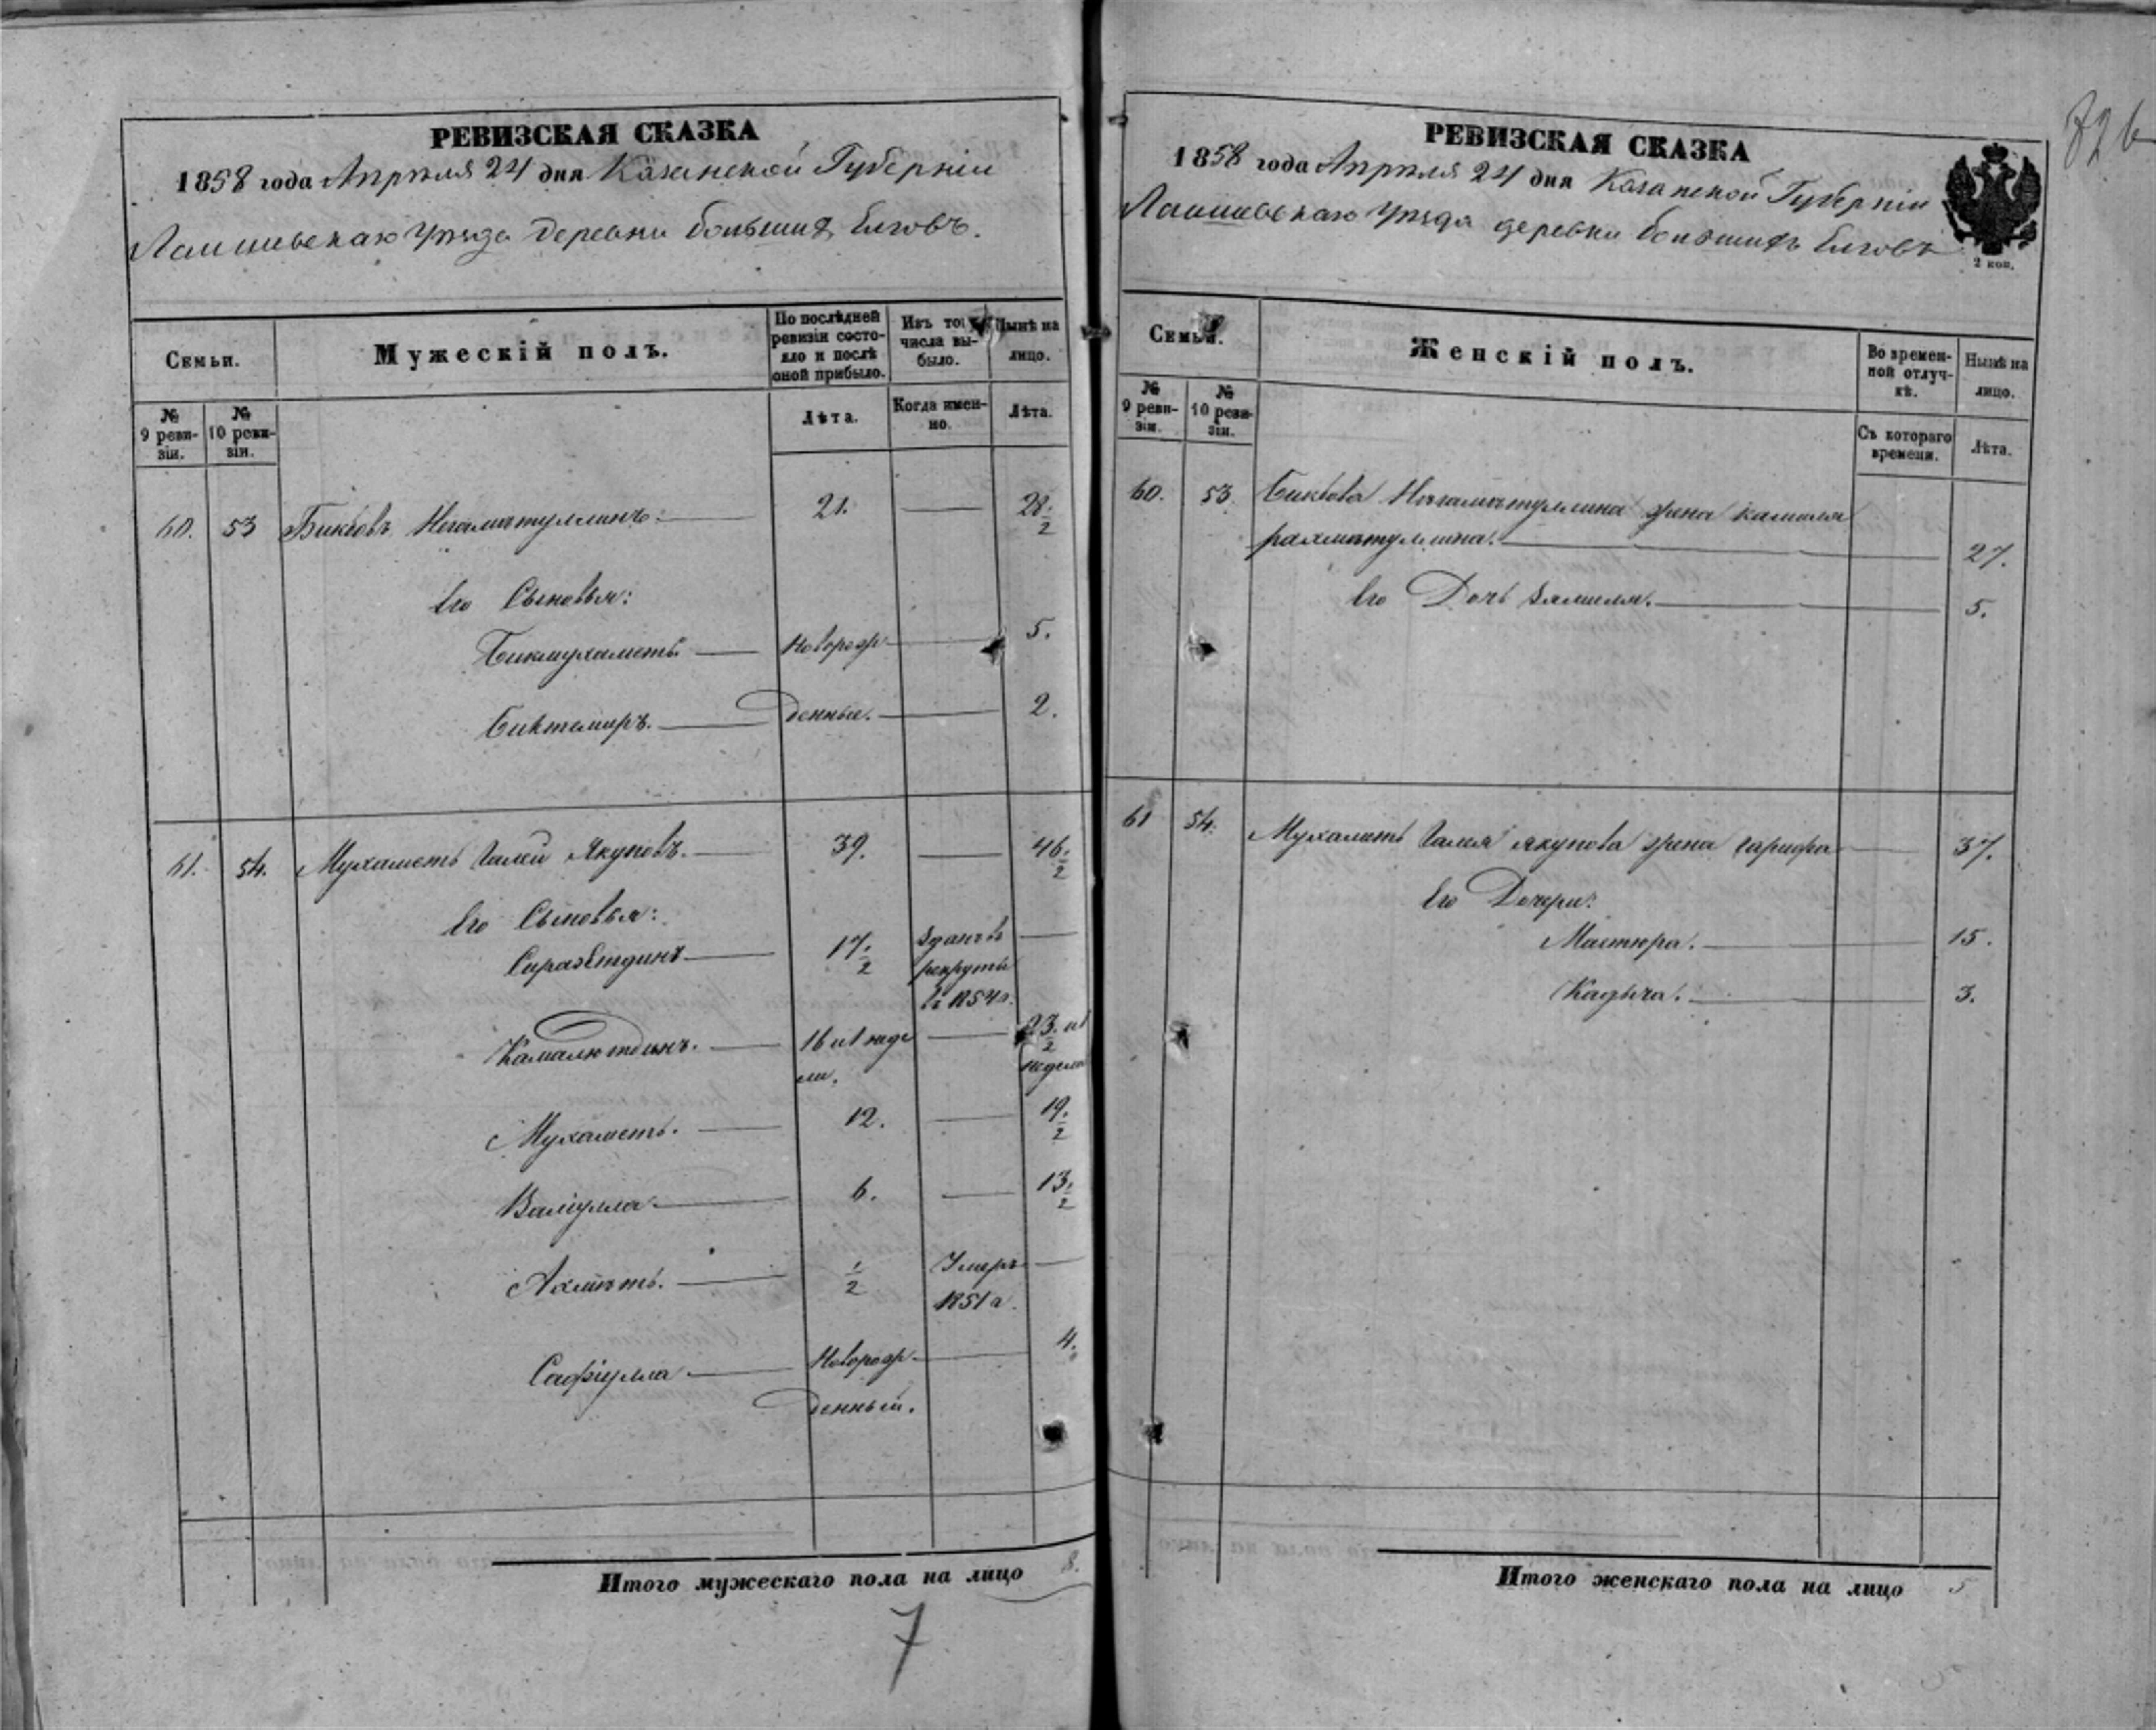 РЕВИЗСКАЯ СКАЗКА
1858 года Апреля 24 дня Казанской Губерніи
Лаишевскаго Уѣзда деревни большихъ Елговъ.
Семьи.
Мужескій полъ.
По послѣдней ревизіи состояло и послѣ оной прибыло.
Изъ то числа выбыло.
Нынѣ на лицо.
№ 9 ревизіи.
№ 10 ревизіи.
Лѣта.
Когда именно.
Лѣта.
60. 53 Бикбовъ Негаматуллинъ: 21. 28 1/2
Его Сыновья:
Бикмухаметъ Новорож 5.
Биктемиръ. денные. 2.
61. 54. Мухаметъ Галей Якуповъ. 39. 46 1/2
Его Сыновья:
Сиразетдинъ 17 1/2 Зданъ въ
рекруты
въ 1854 г.
Камалютдинъ. 16 и 1 неде 23 1/2 и 1
ли. недели
Мухаметъ. 12. 19 1/2
Валіулла 6. 13 1/2
Ахметъ. 1/2 Умеръ
1851 г.
Сафіулла Новорож 4.
денный.
Итого мужескаго пола на лицо 8.
7
326
РЕВИЗСКАЯ СКАЗКА
1858 года Апреля 24 дня Казанской Губерніи
Лаишевскаго Уѣзда деревни большихъ Елговъ
2 коп.
Семьи.
Женскій полъ.
Во временной отлучкѣ.
Нынѣ на лицо.
№ 9 ревизіи.
№ 10 ревизіи.
Съ котораго времени.
Лѣта.
60. 53. Бикбова Негаматуллина жена камиля
рахматуллина. 27.
Его Дочь Зямиля. 5.
61 54. Мухаметъ Галея якупова жена гарифа 37.
Его Дочери:
Мастюра. 15.
Кадыча. 3.
Итого женскаго пола на лицо 5